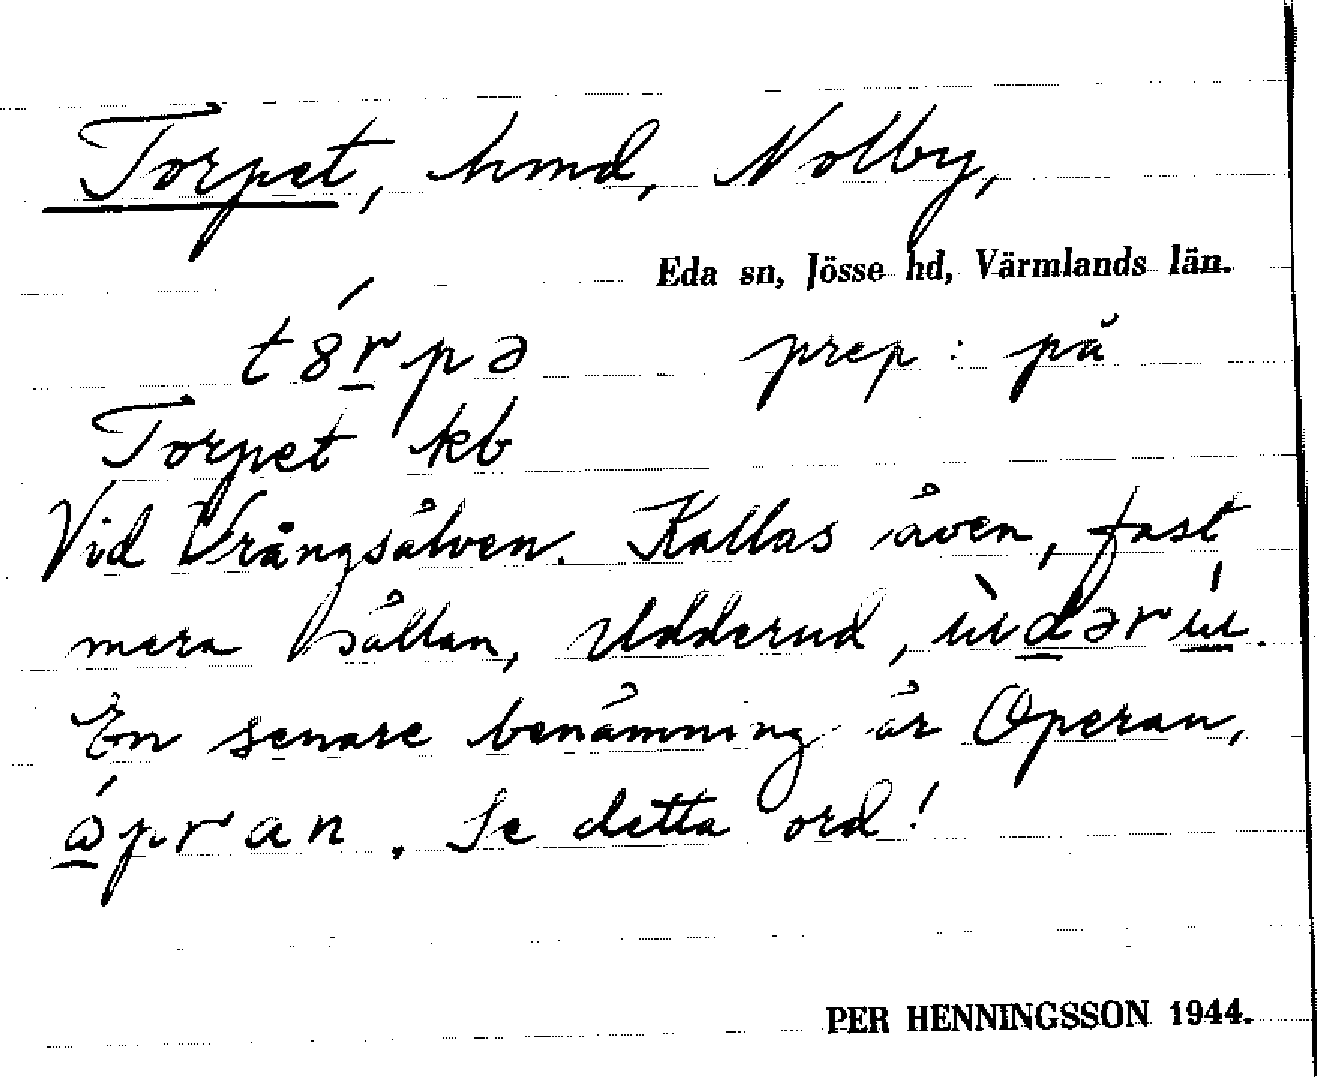 Torpet, hmd, Nolby,
Eda sn, Jösse hd, Värmlands län.
t8́r̲pə prep: på
Torpet kb
Vid Vrångsälven. Kallas även, fast
mera sällan, Udderud,
En senare benämning är Operan,
ώ̲pran. Se detta ord!
PER HENNINGSSON 1944.